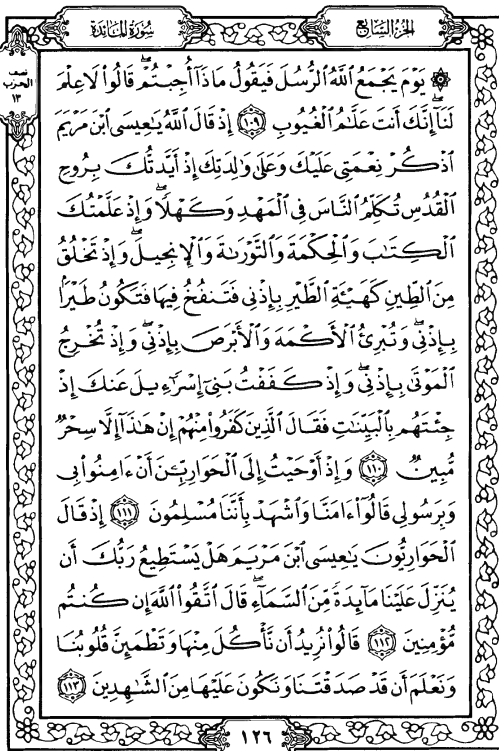 سُورَةُ المَائدة
الجزءُ السَّابِع
نصف
الحزب
١٣
۞ يَوْمَ يَجْمَعُ اللَّهُ الرُّسُلَ فَيَقُولُ مَاذَآ أُجِبْتُمْ ۖ قَالُوا۟ لَا عِلْمَ
لَنَآ ۖ إِنَّكَ أَنتَ عَلَّٰمُ الْغُيُوبِ ١٠٩ إِذْ قَالَ اللَّهُ يَٰعِيسَى ابْنَ مَرْيَمَ
اذْكُرْ نِعْمَتِى عَلَيْكَ وَعَلَىٰ وَٰلِدَتِكَ إِذْ أَيَّدتُّكَ بِرُوحِ
الْقُدُسِ تُكَلِّمُ النَّاسَ فِى الْمَهْدِ وَكَهْلًا ۖ وَإِذْ عَلَّمْتُكَ
الْكِتَٰبَ وَالْحِكْمَةَ وَالتَّوْرَىٰةَ وَالْإِنجِيلَ ۖ وَإِذْ تَخْلُقُ
مِنَ الطِّينِ كَهَيْـَٔةِ الطَّيْرِ بِإِذْنِى فَتَنفُخُ فِيهَا فَتَكُونُ طَيْرًۢا
بِإِذْنِى ۖ وَتُبْرِئُ الْأَكْمَهَ وَالْأَبْرَصَ بِإِذْنِى ۖ وَإِذْ تُخْرِجُ
الْمَوْتَىٰ بِإِذْنِى ۖ وَإِذْ كَفَفْتُ بَنِىٓ إِسْرَٰٓءِيلَ عَنكَ إِذْ
جِئْتَهُم بِالْبَيِّنَٰتِ فَقَالَ الَّذِينَ كَفَرُوا۟ مِنْهُمْ إِنْ هَٰذَآ إِلَّا سِحْرٌ
مُّبِينٌ ١١٠ وَإِذْ أَوْحَيْتُ إِلَى الْحَوَارِيِّـۧنَ أَنْ ءَامِنُوا۟ بِى
وَبِرَسُولِى قَالُوٓا۟ ءَامَنَّا وَاشْهَدْ بِأَنَّنَا مُسْلِمُونَ ١١١ إِذْ قَالَ
الْحَوَارِيُّونَ يَٰعِيسَى ابْنَ مَرْيَمَ هَلْ يَسْتَطِيعُ رَبُّكَ أَن
يُنَزِّلَ عَلَيْنَا مَآئِدَةً مِّنَ السَّمَآءِ ۖ قَالَ اتَّقُوا۟ اللَّهَ إِن كُنتُم
مُّؤْمِنِينَ ١١٢ قَالُوا۟ نُرِيدُ أَن نَّأْكُلَ مِنْهَا وَتَطْمَئِنَّ قُلُوبُنَا
وَنَعْلَمَ أَن قَدْ صَدَقْتَنَا وَنَكُونَ عَلَيْهَا مِنَ الشَّٰهِدِينَ ١١٣
١٢٦